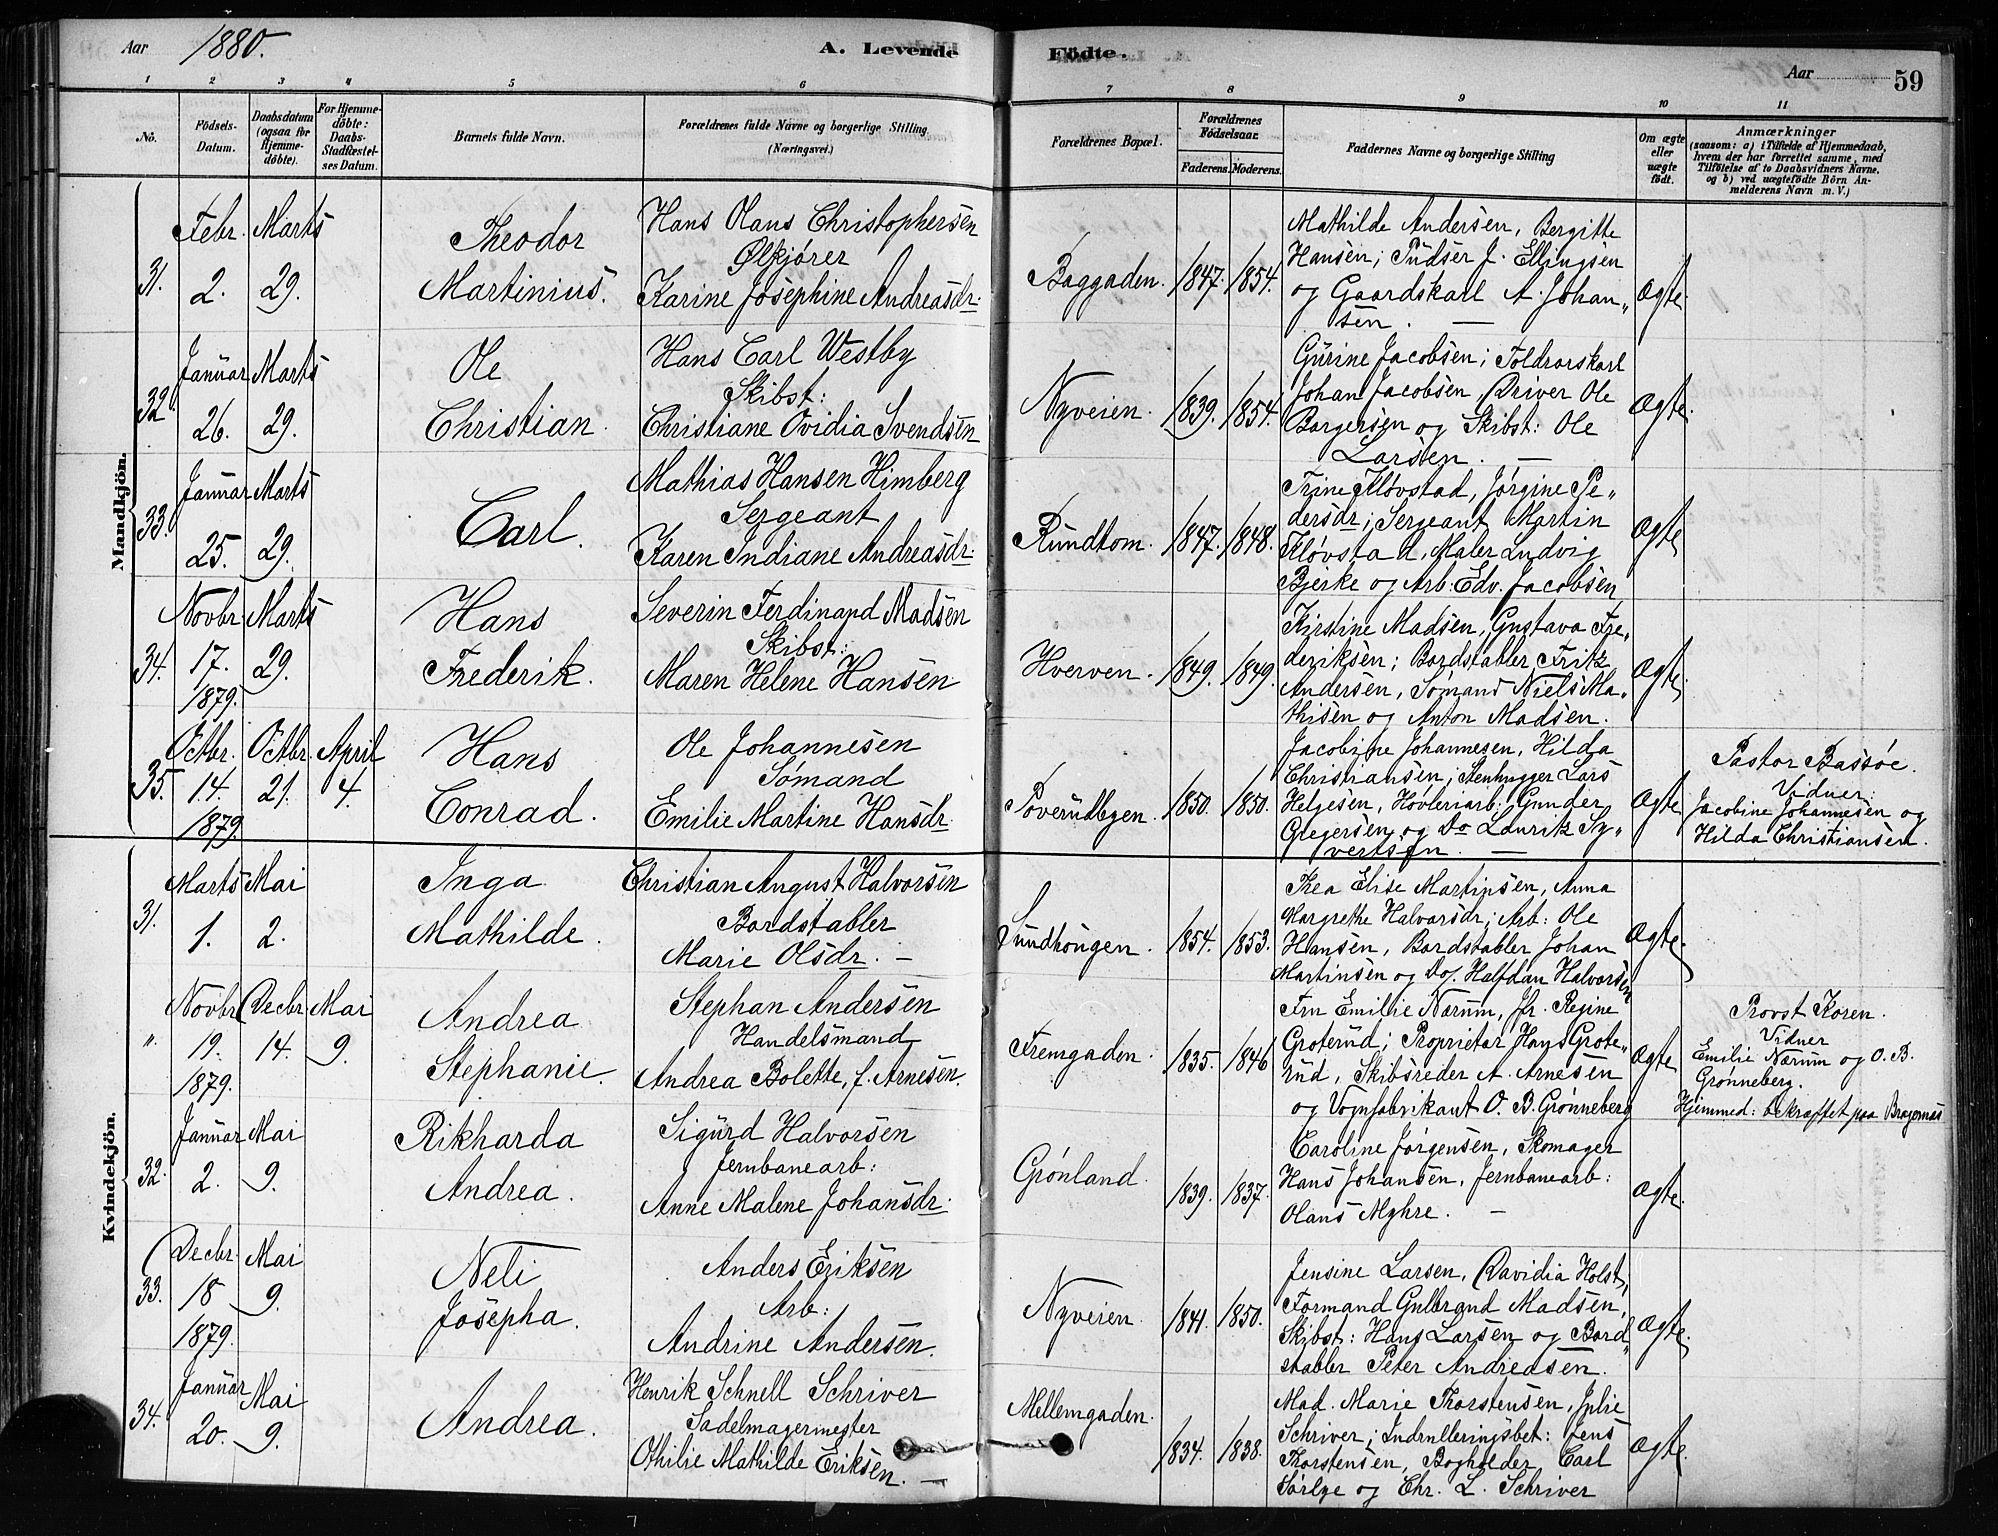 Aar 1880.
A. Levende Födte.
Aar 59
1 2 3 4 5 6 7 8 9 10 11
No.
Födsels-Datum.
Daabsdatum (ogsaa for Hjemme-döbte).
For Hjemme-döbte: Daabs-Stadfæstel-ses Datum.
Barnets fulde Navn.
Forældrenes fulde Navne og borgerlige Stilling (Næringsvei.)
Forældrenes Bopæl.
Forældrenes Födselsaar.
Faderens. Moderens.
Faddernes Navne og borgerlige Stilling
Om ægte eller uægte födt.
Anmærkninger
(saasom: a) i Tilfælde af Hjemmedaab,
hvem der har forrettet samme, med
Tilföielse af to Daabsvidners Navne.
og b) ved uægtefödte Börn An-
melderens Navn m. V.)
Mandkjön.
31.
Febr. 2.
Marts 29.
Theodor
Martinius.
Hans Olaus Christophersen
Ølkjører
Karine Josephine Andreasdr.
Baggaden.
1847. 1854.
Mathilde Andersen, Bergitte
Hansen; Pudser J. Ellingsen
og Gaardskarl A. Johan-
sen. —
Ægte.
32.
Januar 26.
Marts 29.
Ole
Christian.
Hans Carl Westby
Skibst:
Christiane Ovidia Svendsen
Nyveien.
1839. 1854.
Gurine Jacobsen; Toldrorskarl
Johan Jacobsen, Driver Ole
Borgersen og Skibst: Ole
Larsen. —
Ægte.
33.
Januar 25.
Marts 29.
Carl.
Mathias Hansen Himberg
Sergeant
Karen Indiane Andreasdr.
Rundtom.
1847. 1848.
Trine Kløvstad, Jørgine Pe-
dersdr; Sergeant Martin
Kløvstad, Maler Ludvig
Bjerke og Arb. Edv. Jacobsen
Ægte
34.
Novbr. 17. 1879.
Marts 29.
Hans
Frederik.
Severin Ferdinand Madsen
Skibst:
Maren Helene Hansen
Hverven.
1849. 1849.
Kirstine Madsen, Gustava Fre-
deriksen; Bordstabler Fritz
Andersen, Sømand Niels Ma-
thisen og Anton Madsen.
Ægte.
35.
Octbr. 14. 1879.
Octbr. 21.
April 4.
Hans
Conrad.
Ole Johannesen
Sømand
Emilie Martine Hansdr.
Toverudbyen.
1850. 1850.
Jacobine Johannesen, Hilda
Christiansen; Stenhugger Lars
Helgesen, Høvleriarb: Gunder
Gregersen og Do Lauritz Sy-
vertsen. —
Ægte
Pastor Bassøe.
Vidner:
Jacobine Johannesen og
Hilda Christiansen.
Kvindekjön.
31.
Marts 1.
Mai 2.
Inga
Mathilde.
Christian August Halvorsen
Bordstabler
Marie Olsdr. —
Sundhougen.
1854. 1853.
Thea Elise Martinsen, Anna
Margrethe Halvorsdr; Arb: Ole
Hansen, Bordstabler Johan
Martinsen og Do. Halfdan Halvorsen
Ægte.
"
Novbr. 19. 1879.
Decbr. 14.
Mai 9.
Andrea
Stephanie.
Stephan Andersen
Handelsmand
Andrea Bolette, f. Arnesen.
Fremgaden.
1835. 1846
Fru Emilie Nærum, Jfr. Regine
Groterud; Proprietær Hans Grote-
rud, Skibsreder A. Arnesen
og Vognfabrikant O. B. Grønneberg
Ægte
Provst Koren.
Vidner
Emilie Nærum og O. B.
Grønneberg.
Hjemmed: bekræftet paa Bragernæs
32.
Januar 2.
Mai 9.
Rikharda
Andrea.
Sigurd Halvorsen
Jernbanearb:
Anne Malene Johansdr.
Grønland.
1839. 1837.
Caroline Jørgensen, Skomager
Hans Johansen, Jernbanearb:
Olaus Myhre. —
Ægte.
33.
Decbr. 18 1879.
Mai 9.
Neli
Josepha.
Anders Eriksen
Arb:
Andrine Andersen.
Nyveien.
1841. 1850.
Jensine Larsen, Davidia Holst,
Formand Gulbrand Madsen,
Skibst: Hans Larsen og Bord-
stabler Peter Andreasen.
Ægte.
34.
Januar 20.
Mai 9.
Andrea.
Henrik Schnell Schriver
Sadelmagermester
Othilie Mathilde Eriksen. —
Mellemgaden.
1834. 1838.
Mad. Marie Thorstensen, Julie
Schriver; Indrulleringsbet: Jens
Thorstensen, Bogholder Carl
Sørlye og Chr. L. Schriver
Ægte.